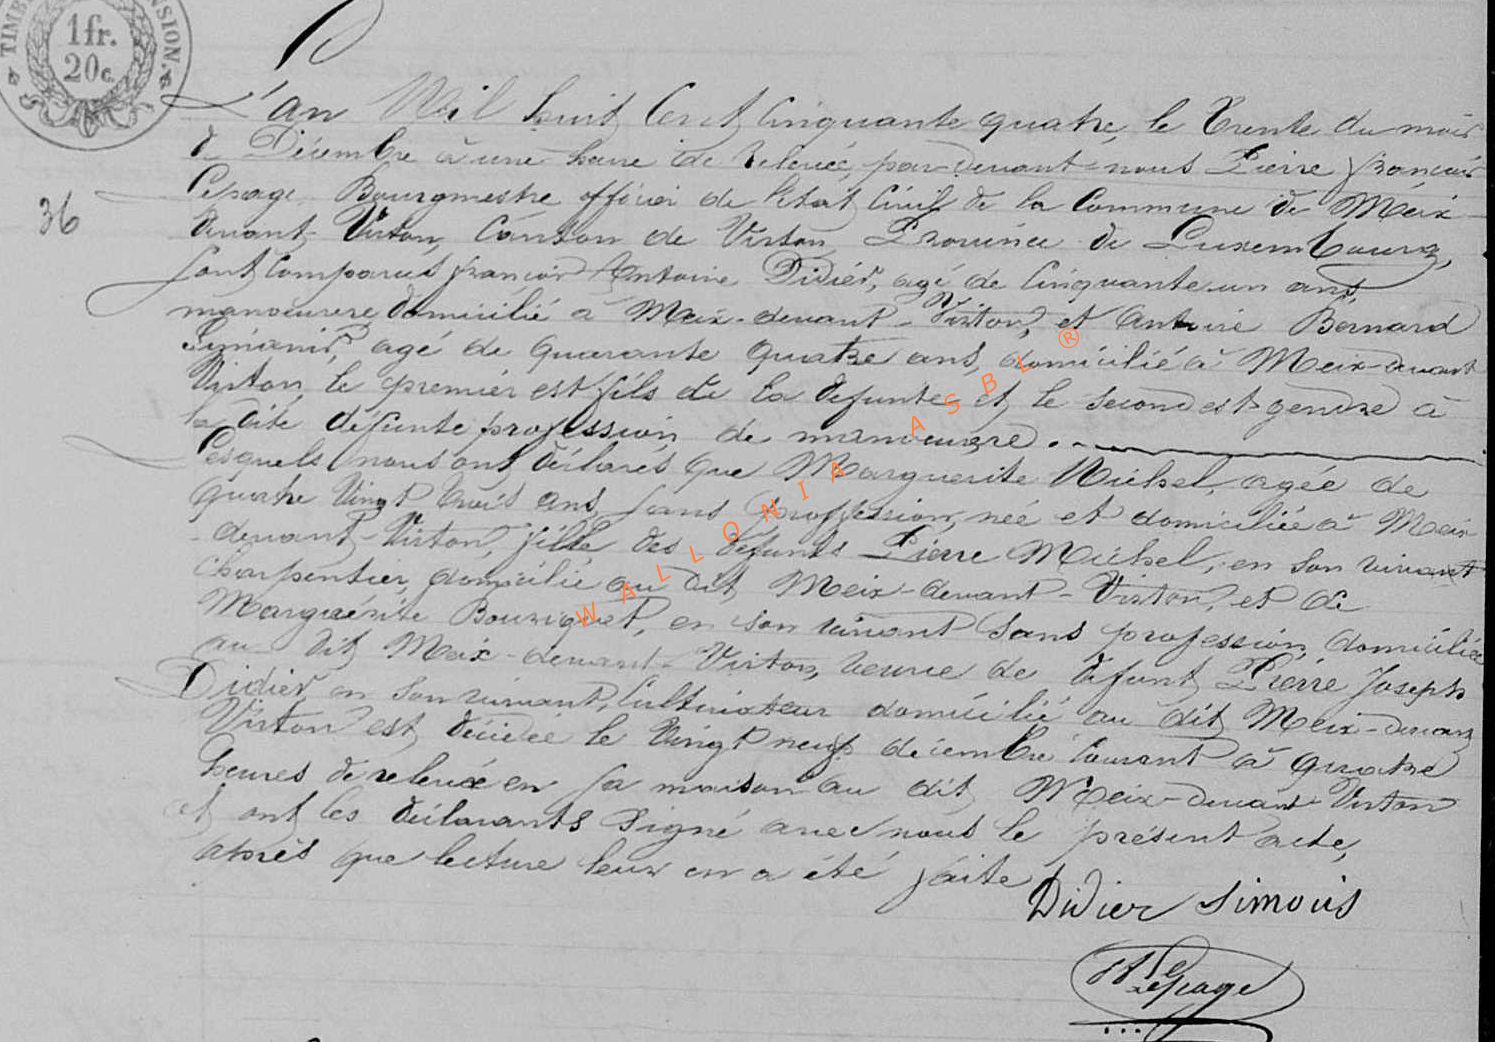 TIMBRE
EXTENSION.
1 fr.
20 c.
36
L'an Mil huit Cent Cinquante quatre, le Trente du mois
de Décembre à une heure de relevée, par devant nous Pierre françois
Lepage, Bourgmestre officier de l'état Civil de la Commune de Meix-
devant-Virton, Canton de Virton, Province de Luxembourg,
sont Comparus françois Antoine Didier, agé de Cinquante un ans,
manoeuvre domicilié à Meix-devant-Virton, et Antoine Bernard
agé de quarante quatre ans, domicilié à Meix-devant
Virton, le premier est fils de la défunte et le second est gendre à
la dite défunte profession de manoeuvre.
Lesquels nous ont déclarés que Marguerite Michel, agée de
quatre Vingt trois ans, sans profession, née et domiciliée à Meix
-devant-Virton, fille des défunts Pierre Michel, en son vivant
Charpentier, domicilié au dit Meix-devant-Virton, et de
Marguerite Bouriguet, en son vivant sans profession, domiciliée
au dit Meix-devant-Virton, veuve de défunt Pierre Joseph
Didier en son vivant, Cultivateur domicilié au dit Meix-devant
Virton est décédée le Vingt neuf décembre Courant à quatre
heures de relevée en sa maison au dit Meix-devant-Virton
et ont les déclarants Signé avec nous le présent acte,
après que lecture leur en a été faite
Didier Simonis
Lepage
WALLONIA ASBL ®